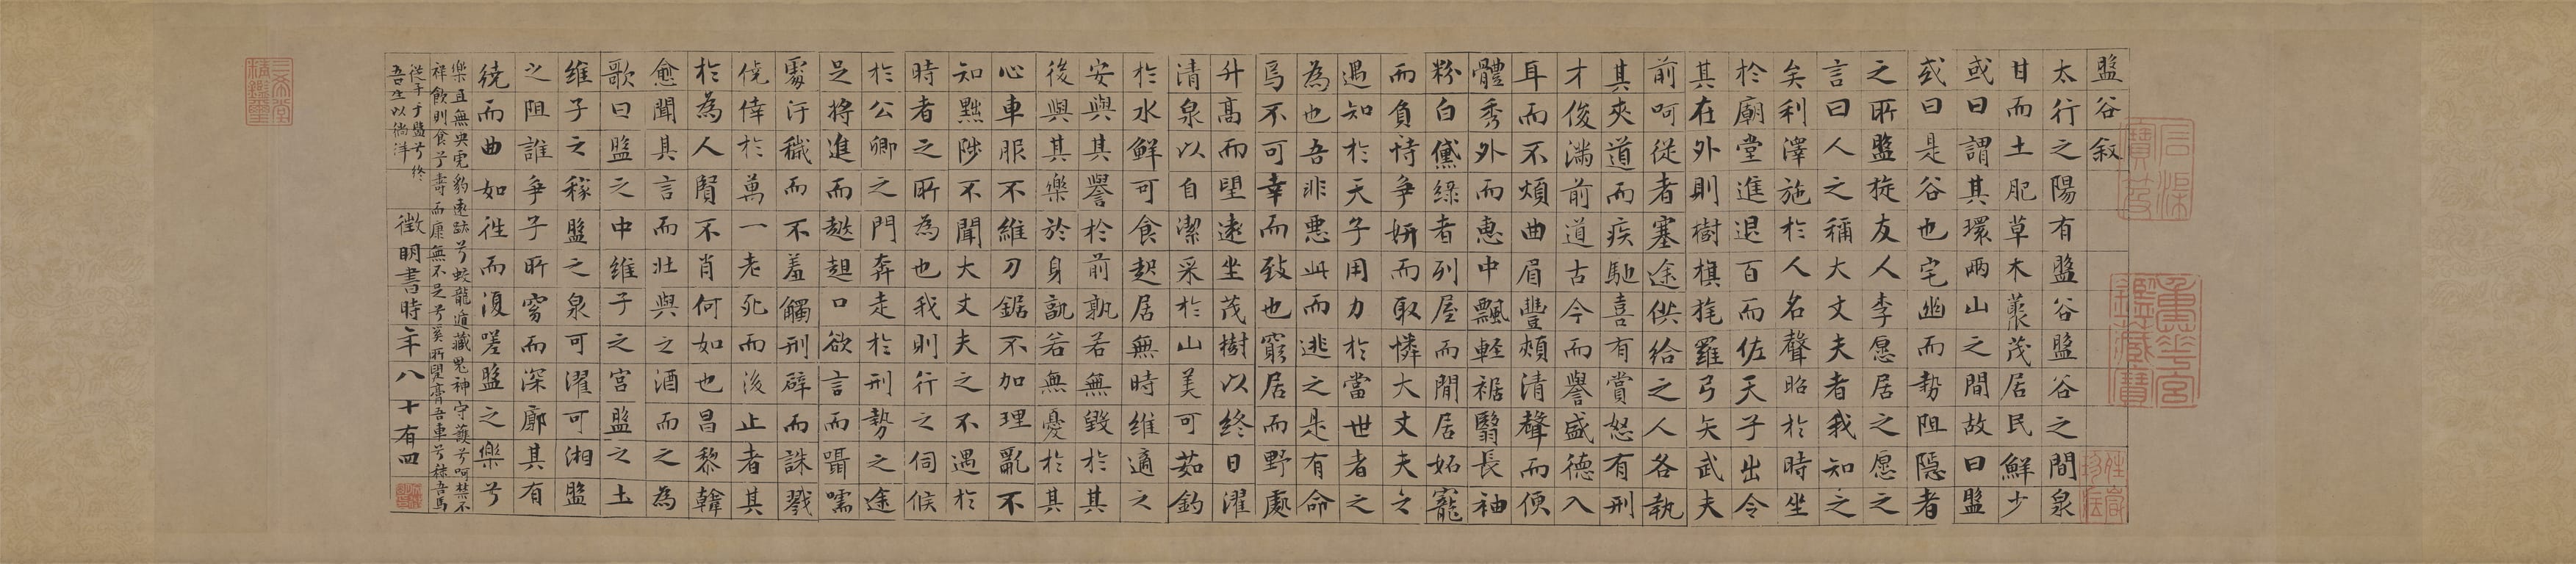 石渠寶笈
重華宮鑑藏寶
盤谷叙
太行之陽有盤谷盤谷之間泉
甘而土肥草木藂茂居民鮮少
或曰謂其環兩山之間故曰盤
或曰是谷也宅幽而勢阻隱者
之所盤旋友人李愿居之愿之
言曰人之稱大丈夫者我知之
矣利澤施於人名聲昭於時坐
於廟堂進退百而佐天子出令
其在外則樹旗旄羅弓矢武夫
前呵從者塞途供給之人各執
其夾道而疾馳喜有賞怒有刑
才俊滿前道古今而譽盛德入
耳而不煩曲眉豐頰清聲而便
體秀外而惠中飄輕裾翳長袖
粉白黛綠者列屋而閒居妬寵
而負恃爭妍而取憐大丈夫之
遇知於天子用力於當世者之
為也吾非惡此而逃之是有命
焉不可幸而致也窮居而野處
升高而望遠坐茂樹以終日濯
清泉以自潔采於山美可茹釣
於水鮮可食起居無時維適之
安與其譽於前孰若無毀於其
後與其樂於身孰若無憂於其
心車服不維刀鋸不加理亂不
知黜陟不聞大丈夫之不遇於
時者之所為也我則行之伺候
於公卿之門奔走於刑勢之途
足將進而趑趄口欲言而囁嚅
處汙穢而不羞觸刑辟而誅戮
僥倖於萬一老死而後止者其
於為人賢不肖何如也昌黎韓
愈聞其言而壯與之酒而之為
歌曰盤之中維子之宮盤之土
維子之稼盤之泉可濯可湘盤
之阻誰爭子所窈而深廓其有
繞而曲如往而復嗟盤之樂兮
樂且無央虎豹遠跡兮蛟龍遁藏鬼神守護兮呵禁不
祥飲則食兮壽而康無不足兮奚所望膏吾車兮秣吾馬
從子于盤兮終
吾生以徜徉
徵明書時年八十有四
三希堂精鑑璽